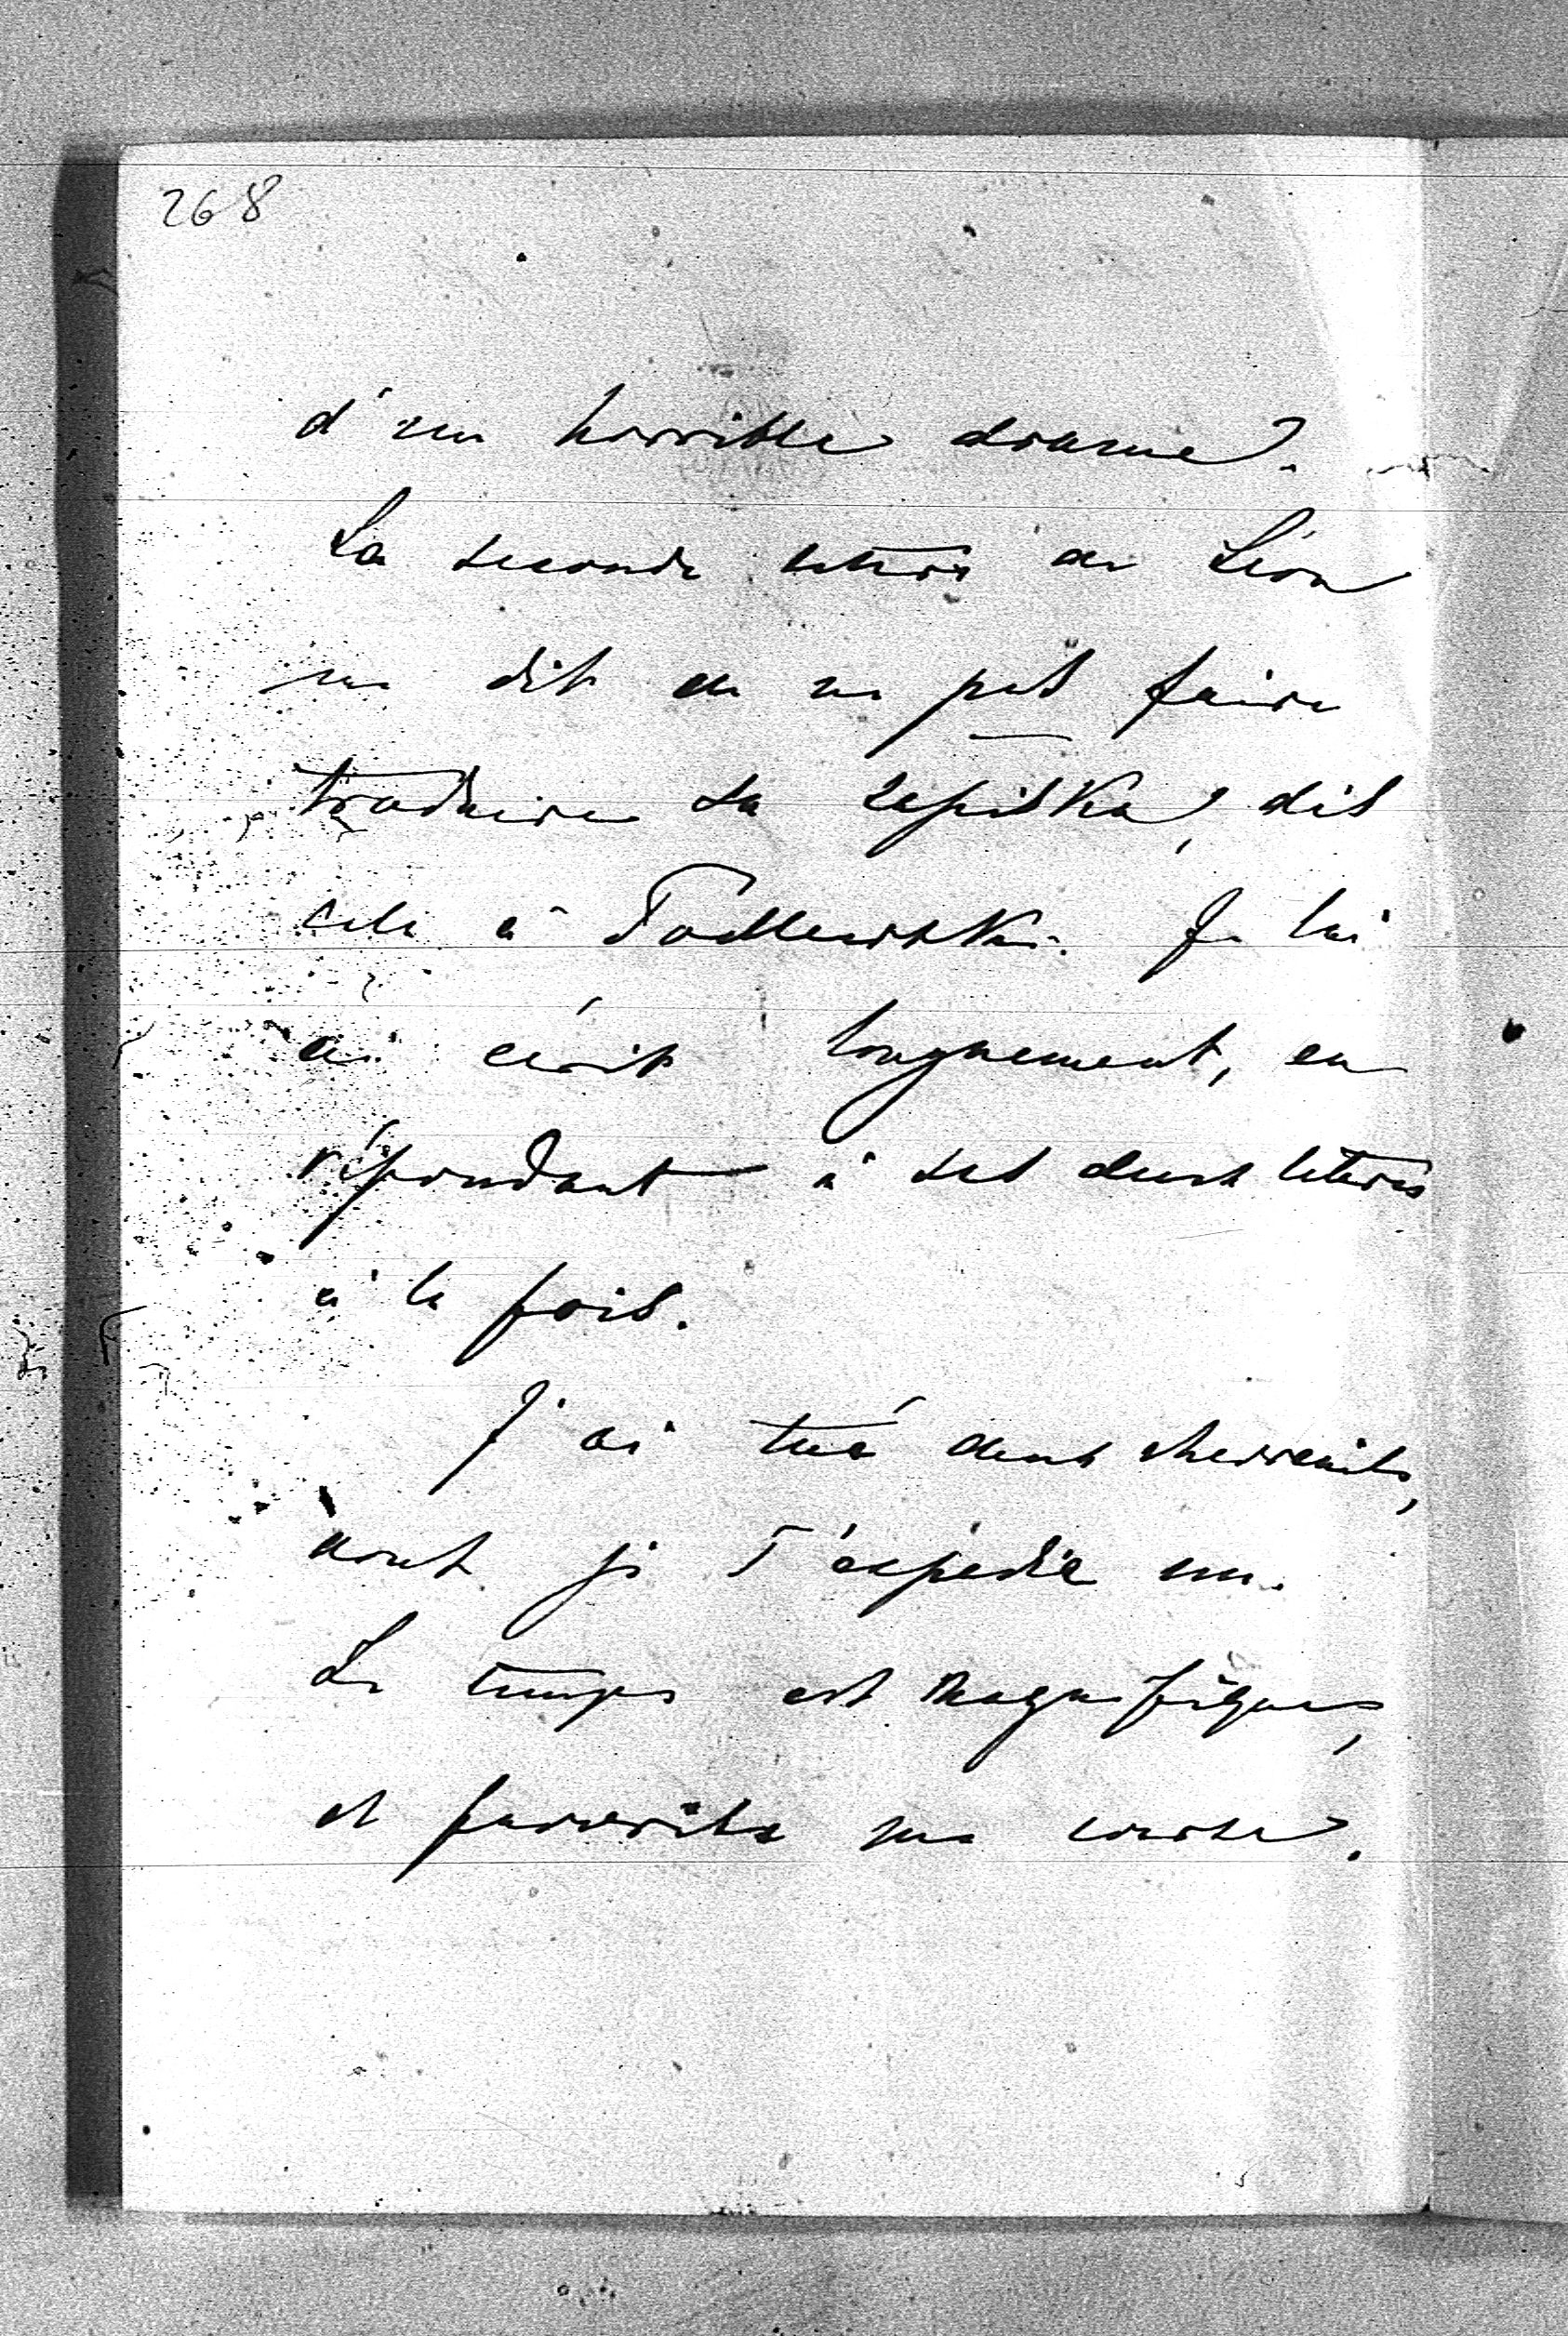 268
d'un horrible drame.
La seconde lettre de Léon
me dit de ne pas faire
traduire sa zapiska, dis
cela à Podlewski. Je lui
ai écrit longuement, en
répondant à ses deux lettres
à la fois.
J'ai tué deux chevreuils,
dont je t'expédie un.
Le temps est magnifique,
et favorise ma course.